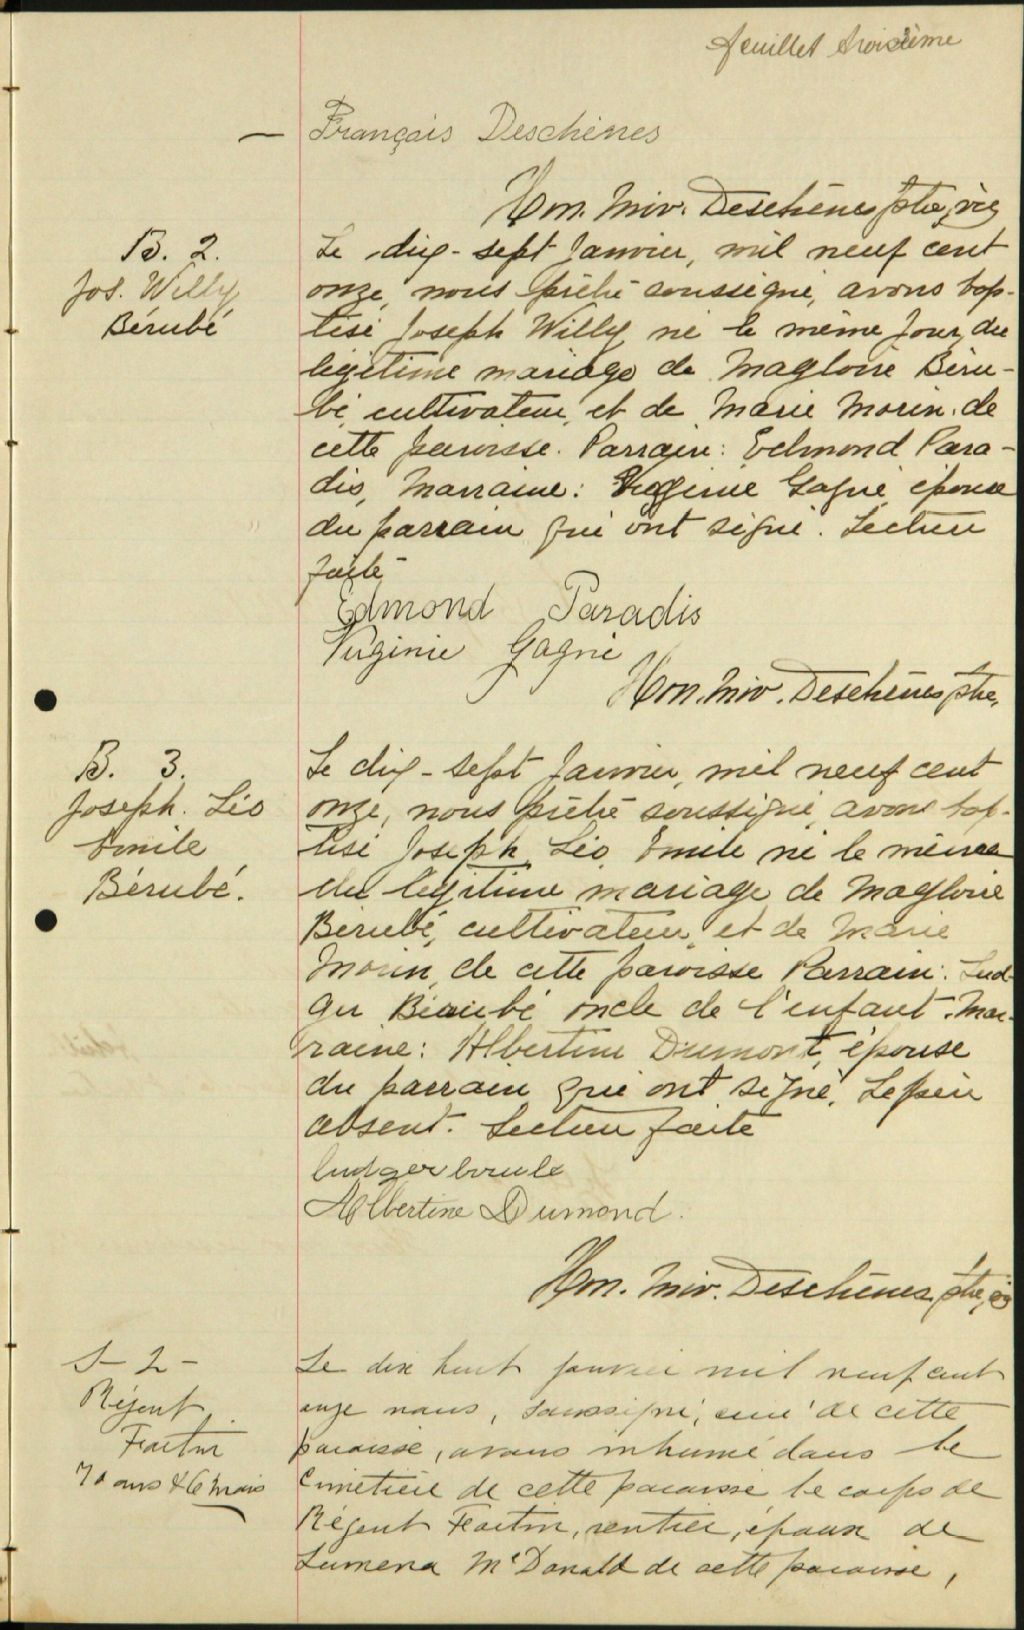 feuillet troisième
— François Deschènes
Hon. Miv. Deschênes ptre, vic
B. 2.
Jos. Willy
Bérubé
Le dix-sept Janvier, mil neuf cent
onze, nous prêtre soussigné, avons bap-
tisé Joseph Willy né le même jour, du
légitime mariage de Magloire Béru-
bé, cultivateur, et de Marie Morin. de
cette paroisse. Parrain: Edmond Para-
dis, Marraine: Virginie Gagné épouse
du parrain qui ont signé. Lecture
faite
Edmond Paradis
Virginie Gagné
Hon. Miv. Deschênes ptre,
B. 3.
Joseph. Léo
Emile
Bérubé.
Le dix-sept Janvier, mil neuf cent
onze, nous prêtre soussigné, avons bap-
tisé Joseph Léo, Emile né le même
du légitime mariage de Magloire
Bérubé, cultivateur, et de Marie
Morin, de cette paroisse Parrain: Lud-
ger Bérubé oncle de l'enfant. Mar-
raine: Albertine Dumont, épouse
du parrain qui ont signé. Le père
absent. Lecture faite
Albertine Dumond.
Hon. Miv. Deschênes ptre, vic
S-2-
Régent
Fortin
70 ans & 6 mois
Le dix huit janvier mil neuf cent
onze nous, soussigné, curé de cette
paroisse, avons inhumé dans le
cimetière de cette paroisse le corps de
Régent Fortin, rentier, époux de
Lumena McDonald de cette paroisse,